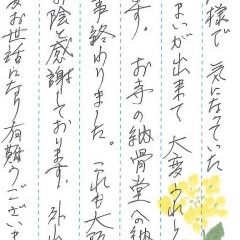 様で 気になっていた
まいが出来て 大変うれし
す。お寺の納骨堂への納
事終わりました。これも大
お陰と感謝しております。
お世話になり有難うございま